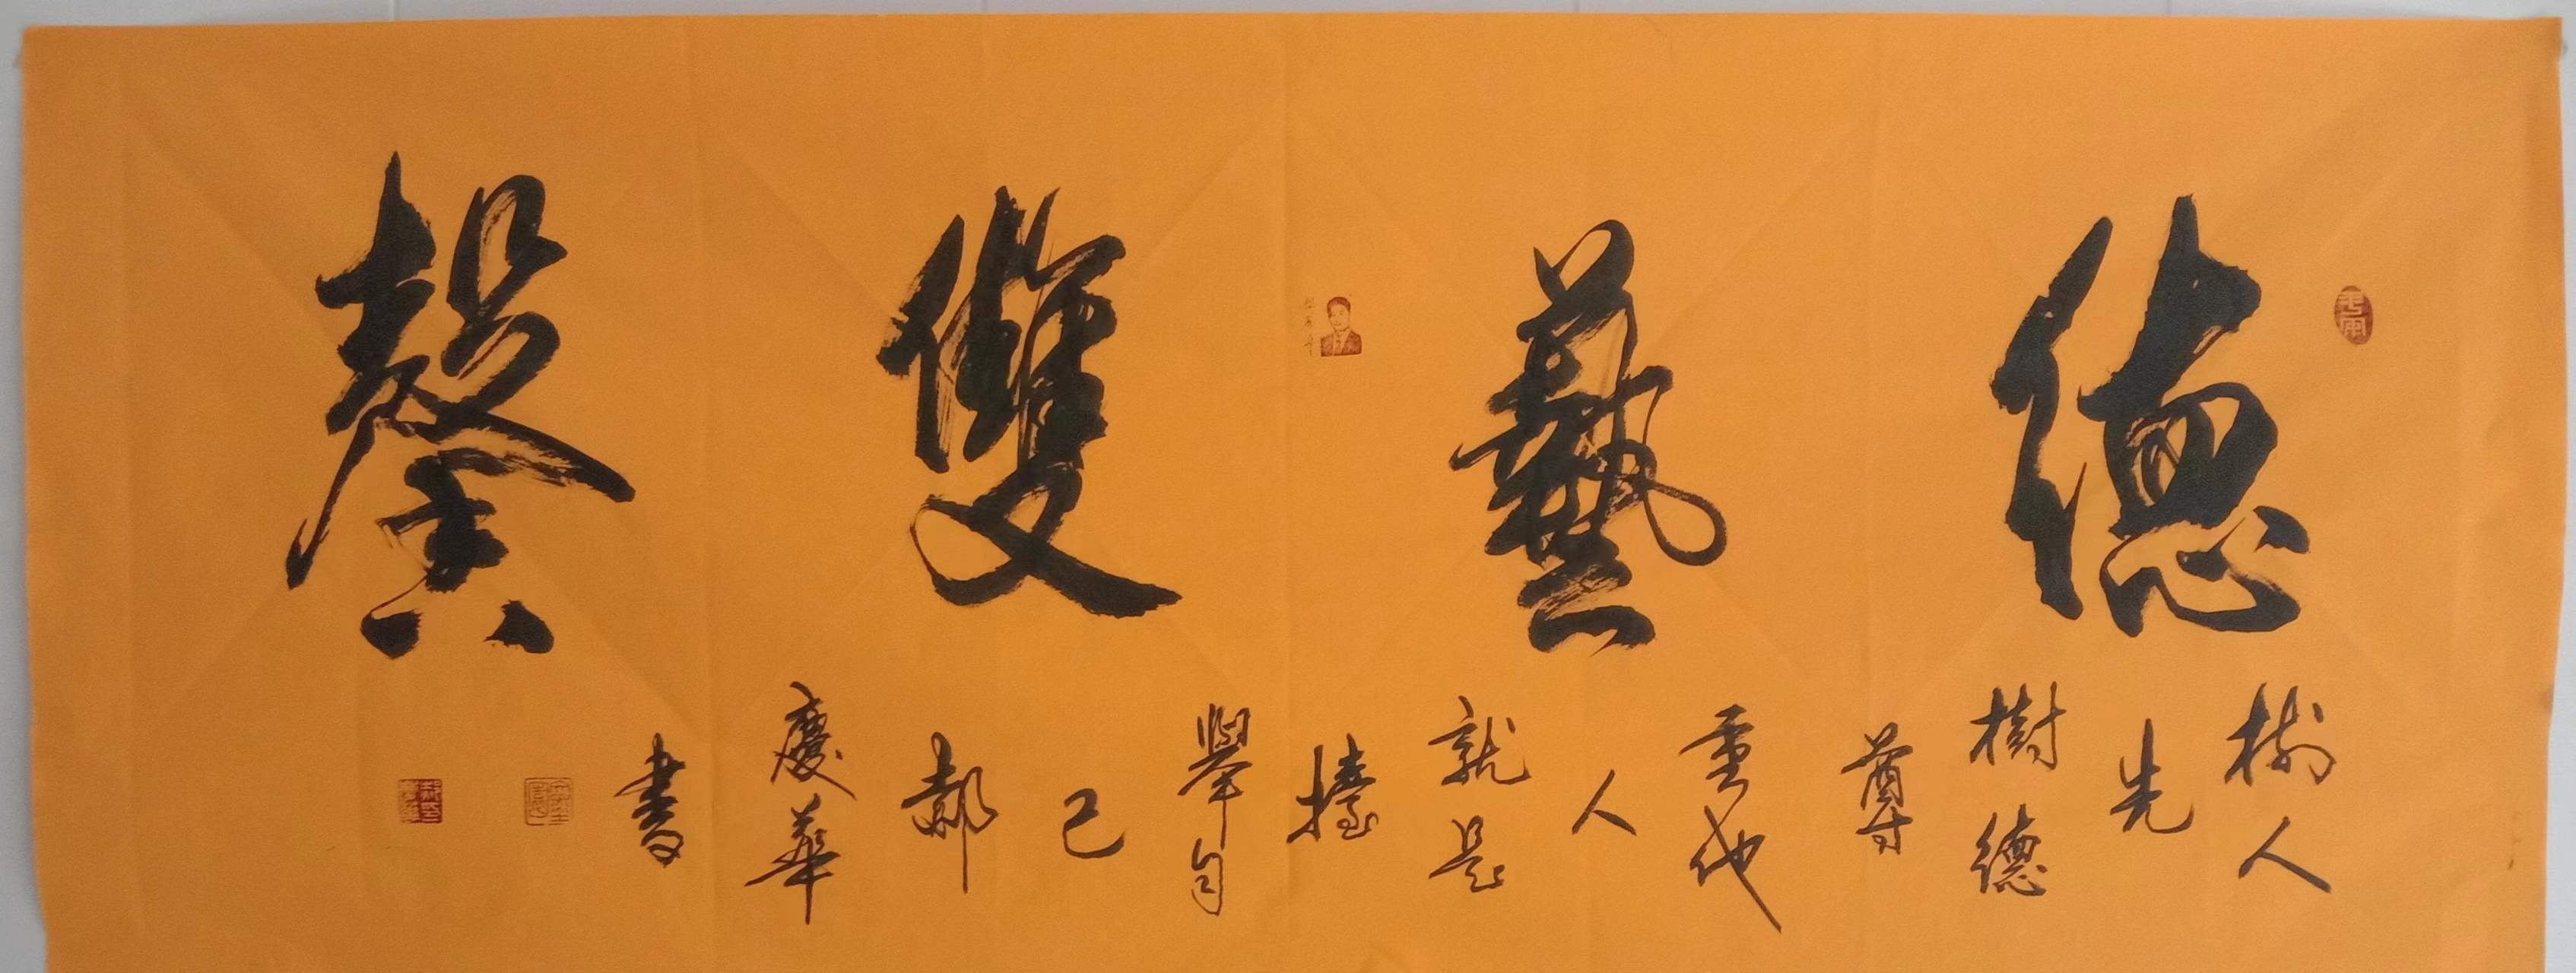 德藝雙馨
樹人
先
樹德
尊
重他
人
就是
擡
舉自
己
郝
慶華
書